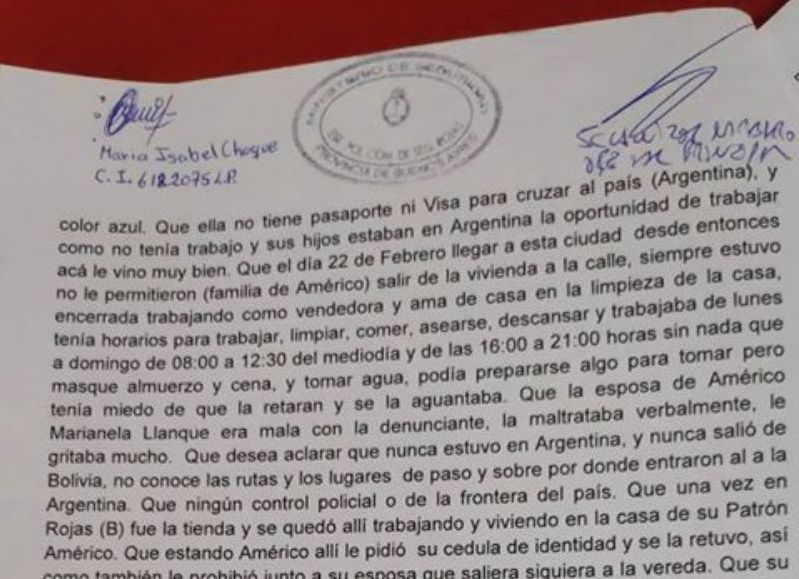 MINISTERIO DE SEGURIDAD
PROVINCIA DE BUENOS AIRES
Maria Isabel Choque
C. I. 6182075 L.P.
color azul. Que ella no tiene pasaporte ni Visa para cruzar al país (Argentina), y
como no tenía trabajo y sus hijos estaban en Argentina la oportunidad de trabajar
acá le vino muy bien. Que el día 22 de Febrero llegar a esta ciudad desde entonces
no le permitieron (familia de Américo) salir de la vivienda a la calle, siempre estuvo
encerrada trabajando como vendedora y ama de casa en la limpieza de la casa,
tenía horarios para trabajar, limpiar, comer, asearse, descansar y trabajaba de lunes
a domingo de 08:00 a 12:30 del mediodía y de las 16:00 a 21:00 horas sin nada que
masque almuerzo y cena, y tomar agua, podía prepararse algo para tomar pero
tenía miedo de que la retaran y se la aguantaba. Que la esposa de Américo
Marianela Llanque era mala con la denunciante, la maltrataba verbalmente, le
gritaba mucho. Que desea aclarar que nunca estuvo en Argentina, y nunca salió de
Bolivia, no conoce las rutas y los lugares de paso y sobre por donde entraron al a la
Argentina. Que ningún control policial o de la frontera del país. Que una vez en
Rojas (B) fue la tienda y se quedó allí trabajando y viviendo en la casa de su Patrón
Américo. Que estando Américo allí le pidió su cedula de identidad y se la retuvo, así
como también le prohibió junto a su esposa que saliera siquiera a la vereda. Que su